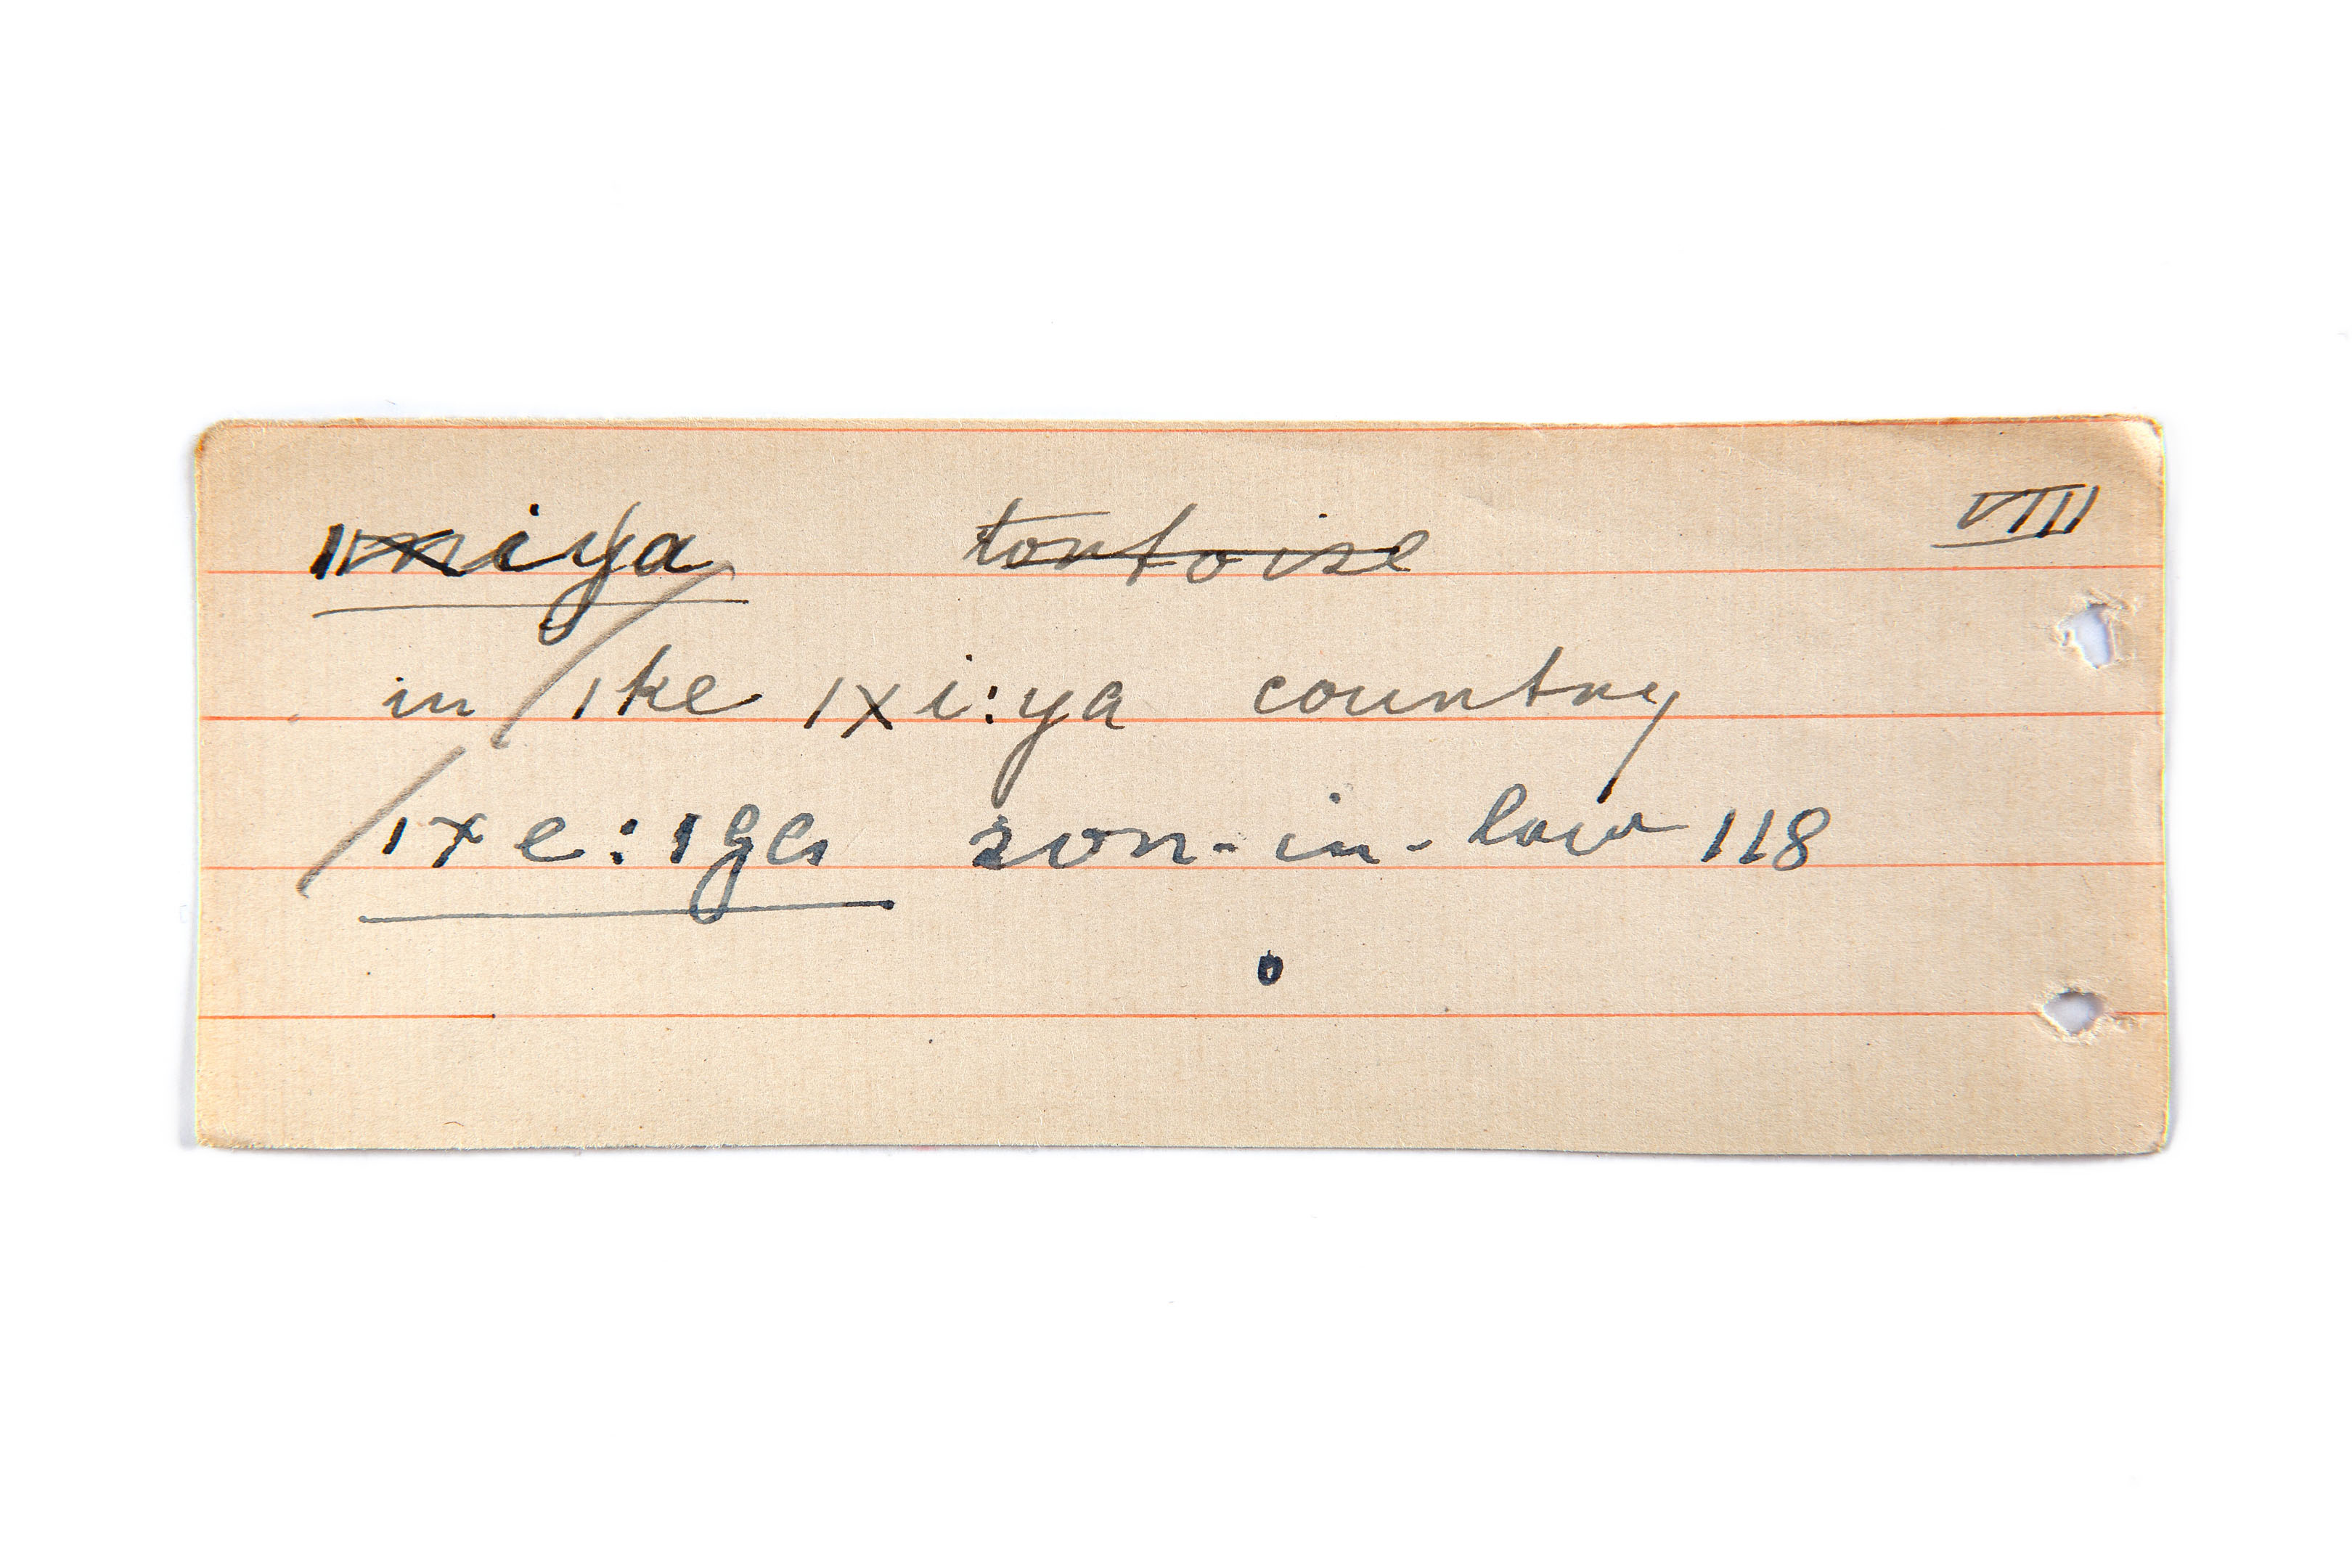 ǀǀxiya tortoise VIII
in ǀke ǀxi:ya country
ǀxe:ǀga son-in-law 118